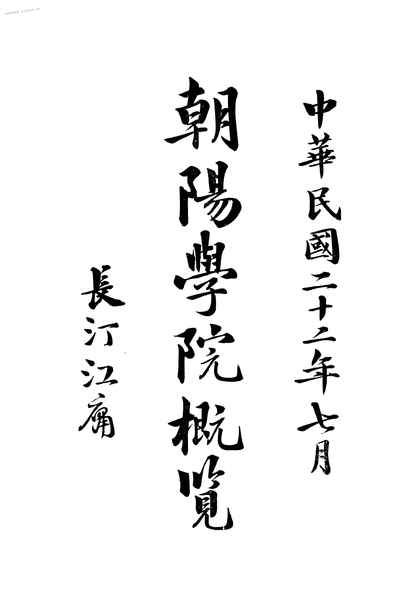 中華民國二十二年七月
朝陽學院概覽
長汀江庸